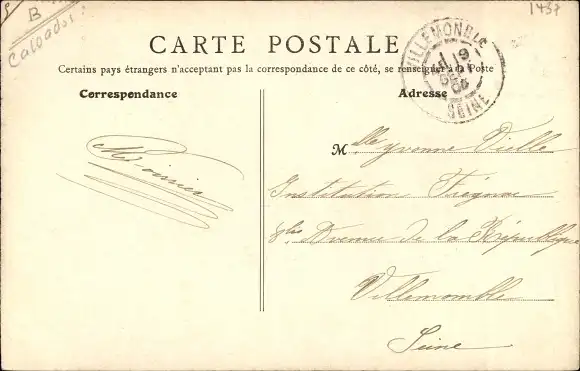 B
Calvados
1437
CARTE POSTALE
Certains pays étrangers n'acceptant pas la correspondance de ce côté, se renseigner à la Poste
VILLEMOMBLE
SEINE
Correspondance
Adresse
Mlle Yvonne Vielle
Institution Frégnac
8bis Avenue de la République
Villemomble
Seine